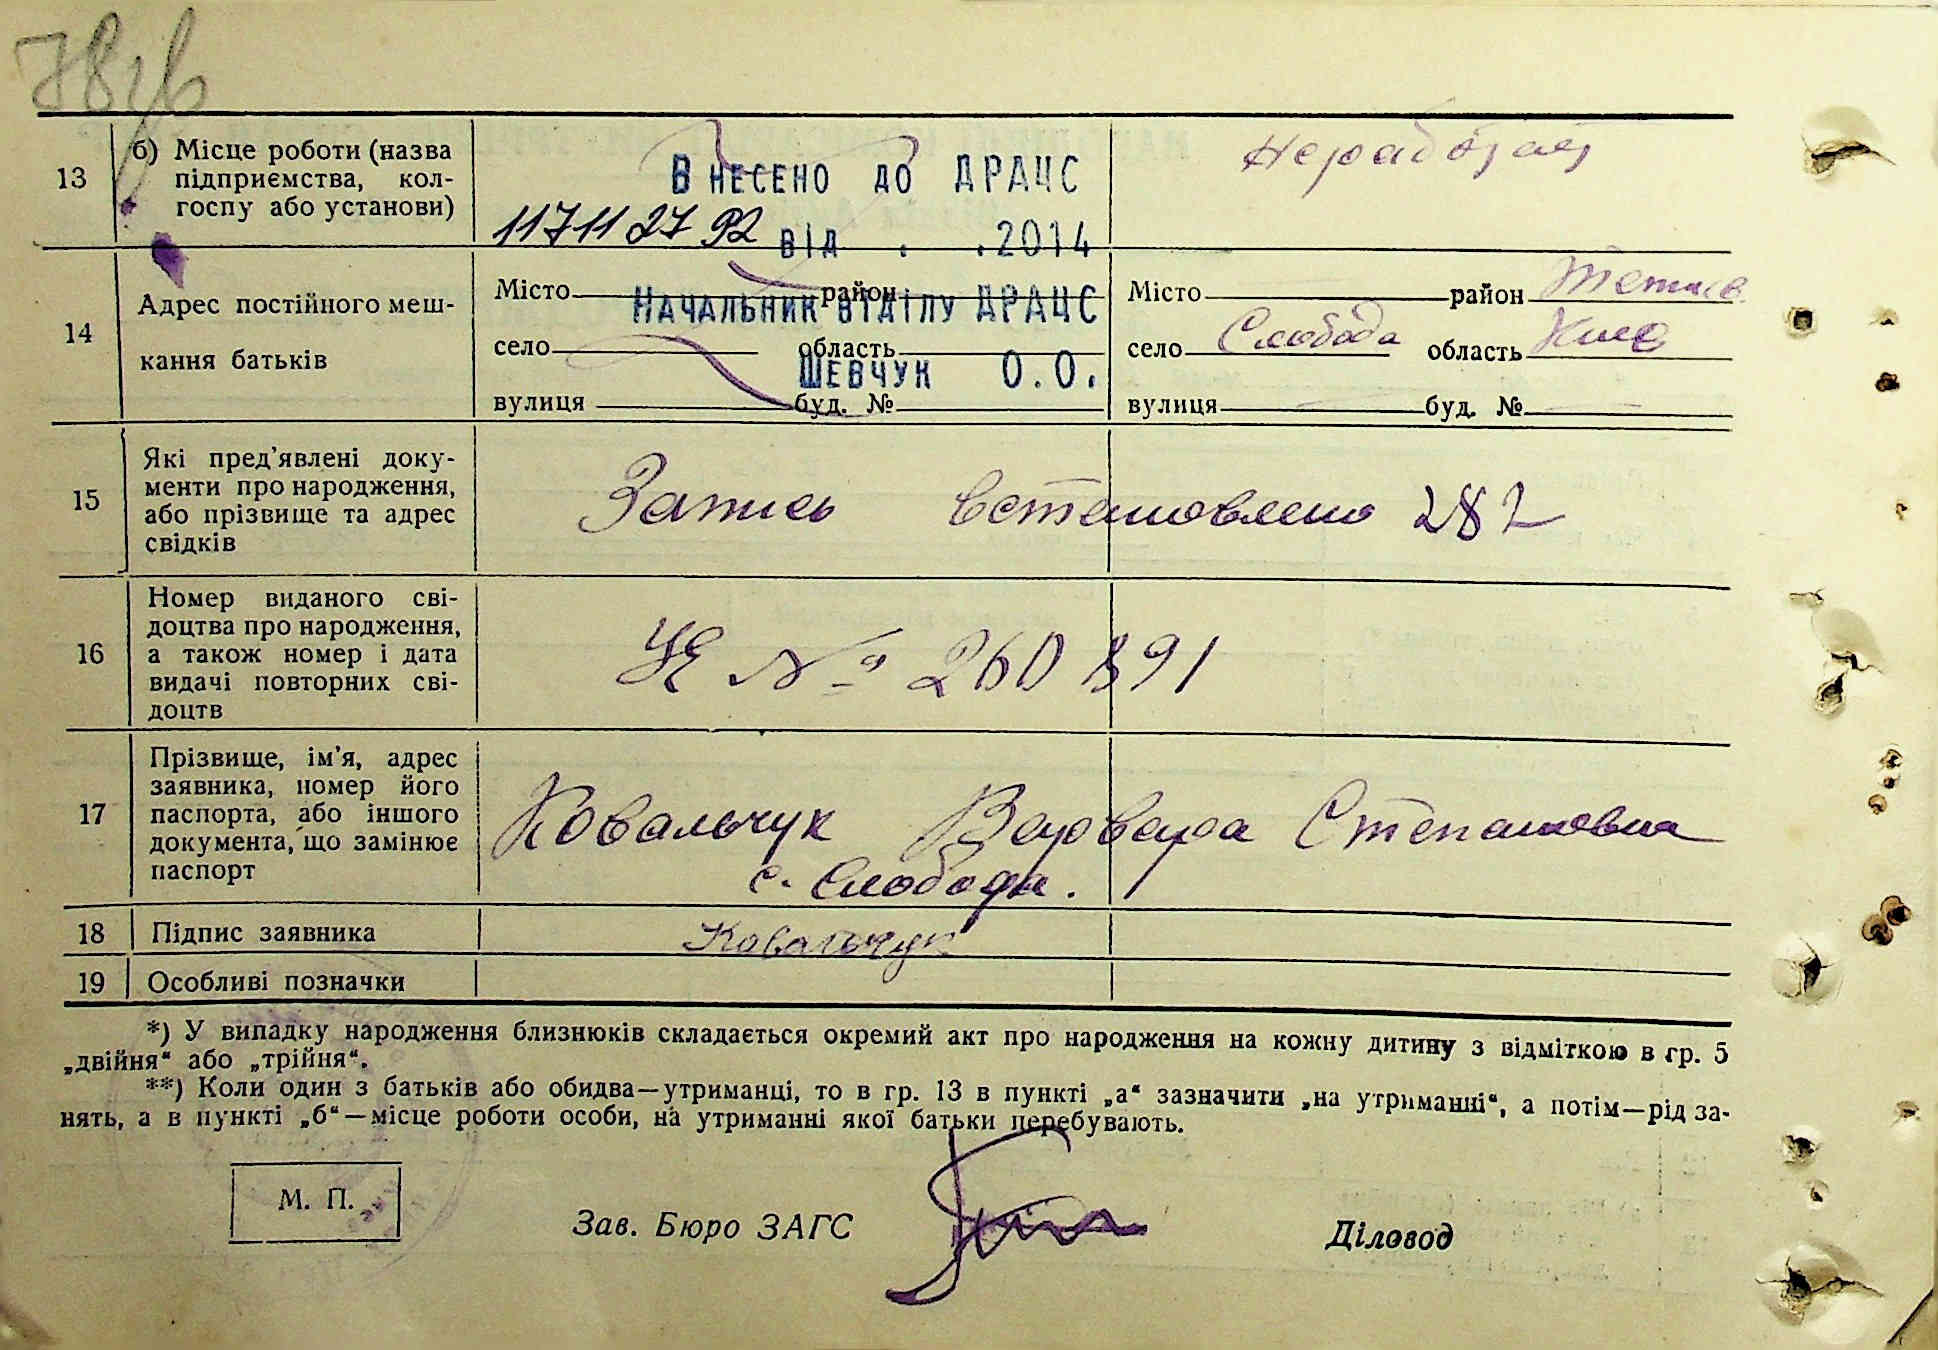 13
б) Місце роботи (назва
підприємства, кол-
госпу або установи)
ВНЕСЕНО ДО ДРАЦС
1171127 92 ВІД . .2014
14
Адрес постійного меш-
кання батьків
Місто район
НАЧАЛЬНИК ВІДІЛУ ДРАЦС
село область
ШЕВЧУК О.О.
вулиця буд. №
Місто район Тетиєв.
село Слобода область Киев
вулиця буд. №
15
Які пред'явлені доку-
менти про народження,
або прізвище та адрес
свідків
Запись встановлено 282
16
Номер виданого сві-
доцтва про народження,
а також номер і дата
видачі повторних сві-
доцтв
№ 260891
17
Прізвище, ім'я, адрес
заявника, номер його
паспорта, або іншого
документа, що замінює
паспорт
Ковальчук Варвара Степановна
с. Слобода.
18 Підпис заявника Ковальчук
19 Особливі позначки
*) У випадку народження близнюків складається окремий акт про народження на кожну дитину з відміткою в гр. 5
„двійня“ або „трійня“.
**) Коли один з батьків або обидва—утриманці, то в гр. 13 в пункті „а“ зазначити „на утриманні“, а потім—рід за-
нять, а в пункті „б“—місце роботи особи, на утриманні якої батьки перебувають.
М. П.
Зав. Бюро ЗАГС Діловод